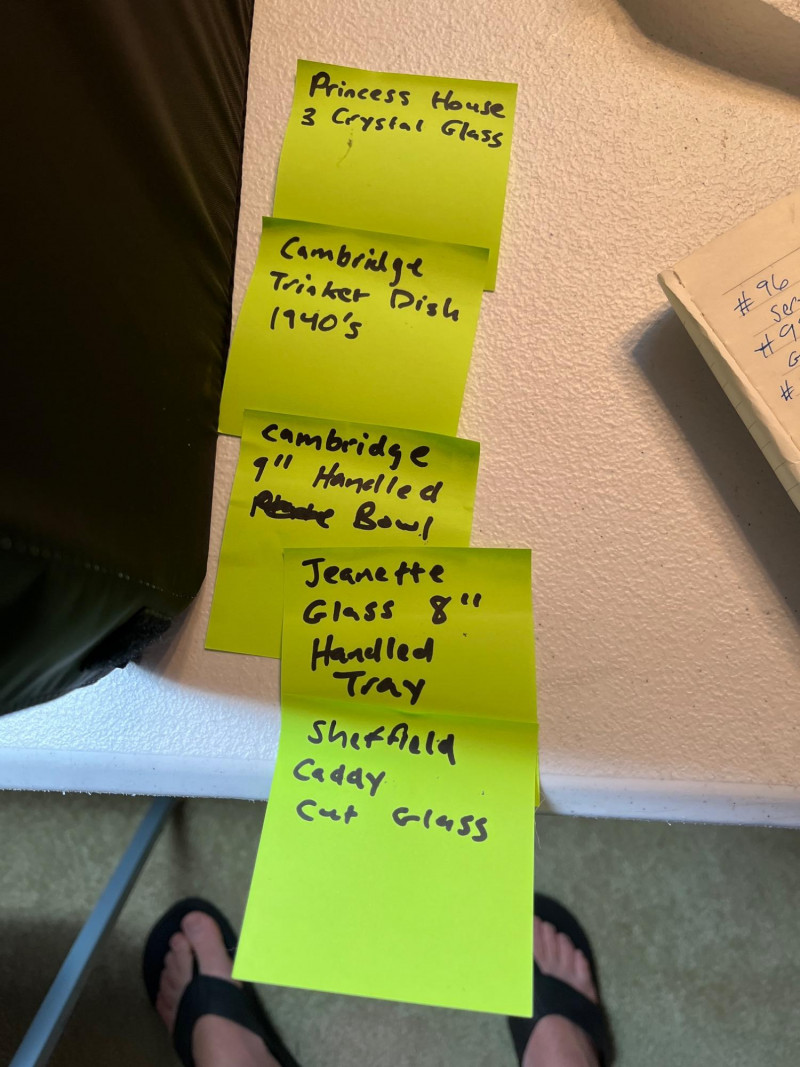 Princess House
3 Crystal Glass
Cambridge
Trinket Dish
1940's
Cambridge
9" Handled
Bowl
Jeanette
Glass 8"
Handled
Tray
Sheffield
Caddy
Cut Glass
# 96
Ser
# 9
G
#